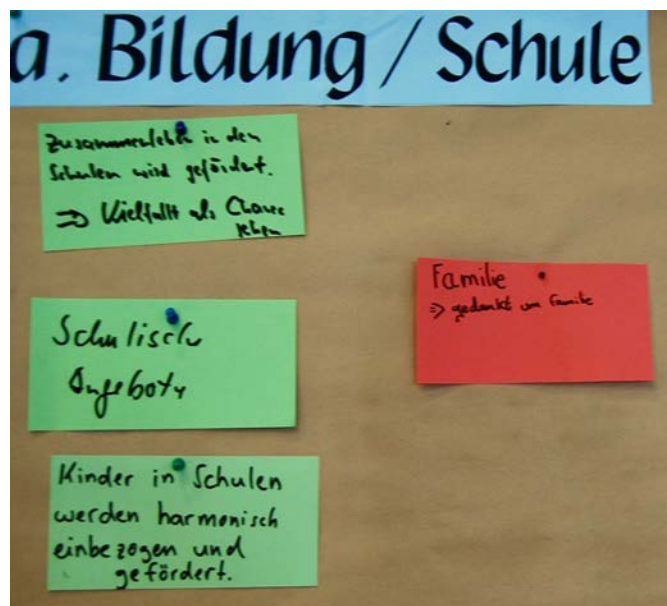 a. Bildung / Schule
Zusammenleben in den
Schulen wird gefördert.
⇒ Vielfallt als Chance
sehen
Schulisch
Angebote
Kinder in Schulen
werden harmonisch
einbezogen und
gefördert.
Familie
⇒ um Familie